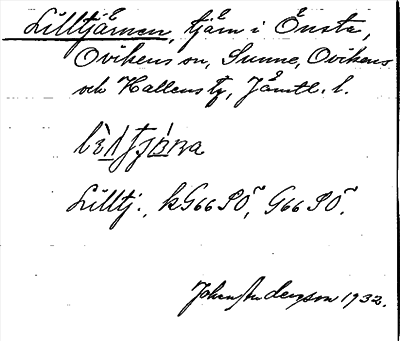 Lilltjärnen, tjärn i Önsta,
Ovikens sn, Sunne, Ovikens
och Hallens tg, Jämtl. l.
Lilltj., kG66SÖ, G66SÖ.
Johan Anderzson 1932.